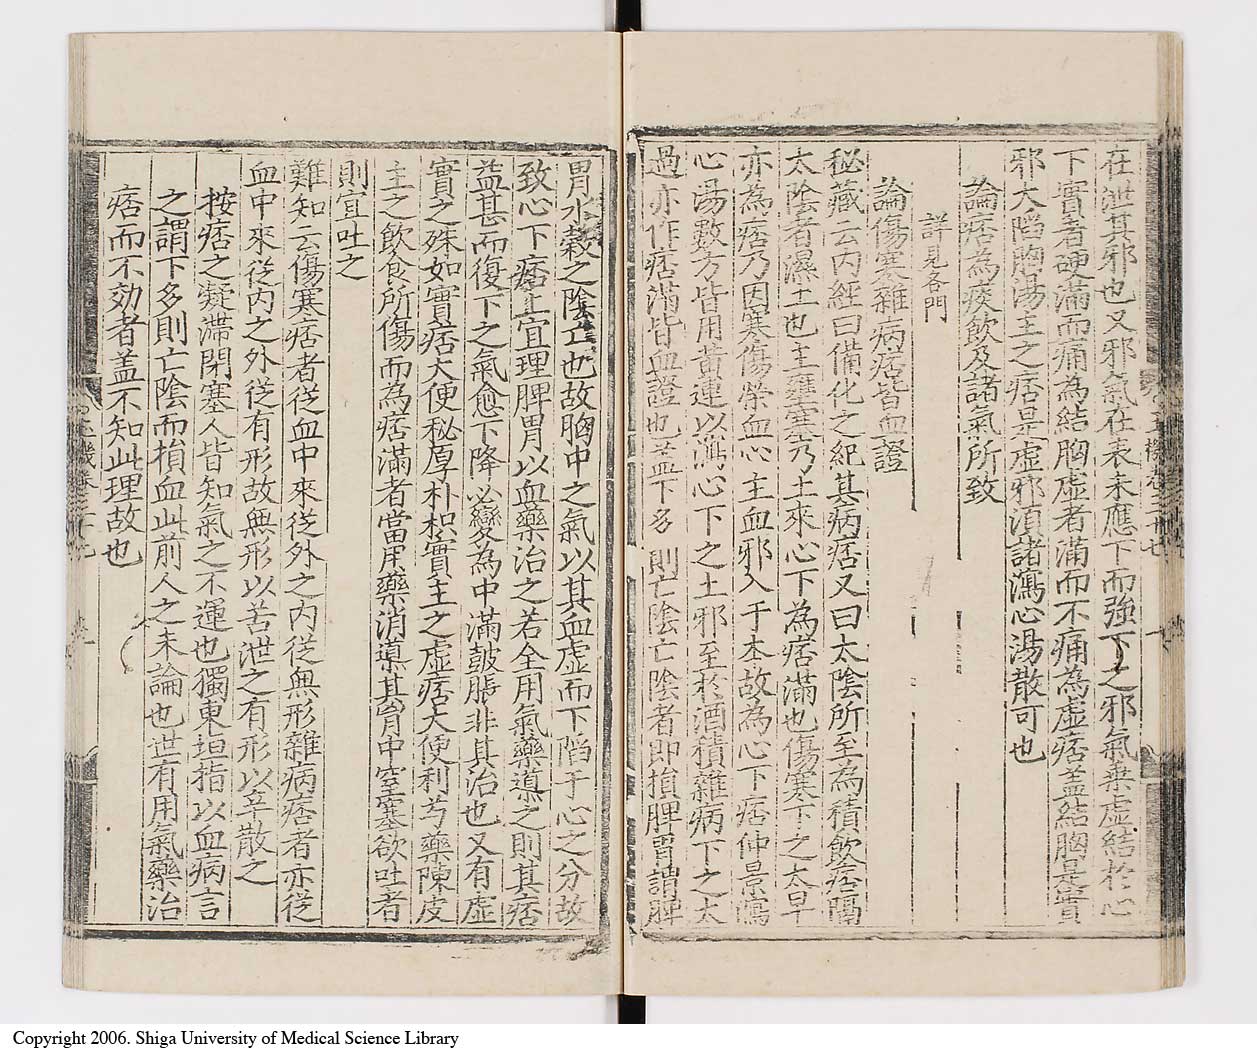 在泄其邪也又邪氣在表未應下而強下之邪氣乗虚結於心
下實者硬滿而痛為結胸虚者滿而不痛為虚痞盖結胸是實
邪大陷胸湯主之痞是虚邪湏諸瀉心湯散可也
論痞為痰飲及諸氣所致
詳見各門
論傷寒雜病痞皆血證
秘藏云内經曰備化之紀其病痞又曰太陰所至為積飲痞隔
太陰者濕土也主壅塞乃土來心下為痞滿也傷寒下之太早
亦為痞乃因寒傷榮血心主血邪入于本故為心下痞仲景瀉
心湯數方皆用黄連以瀉心下之土邪至於酒積雜病下之太
過亦作痞滿皆血證也盖下多則亡陰亡陰者即損脾胃謂脾
胃水穀之陰亡也故胸中之氣以其血虚而下陷于心之分故
致心下痞止宜理脾胃以血藥治之若全用氣藥導之則其痞
益甚而復下之氣愈下降必變為中滿皷脹非其治也又有虚
實之殊如實痞大便秘厚朴枳實主之虚痞大便利芍藥陳皮
主之飲食所傷而為痞滿者當用藥消導其胷中窒塞欲吐者
則宜吐之
難知云傷寒痞者從血中來從外之内從無形雜病痞者亦從
血中來從内之外從有形故無形以苦泄之有形以辛散之
按痞之凝滯閉塞人皆知氣之不運也獨東垣指以血病言
之謂下多則亡陰而損血此前人之未論也世有用氣藥治
痞而不効者盖不知此理故也
Copyright 2006. Shiga University of Medical Science Library